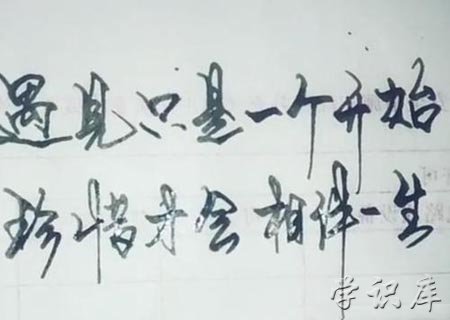 遇见只是一个开始
珍惜才会相伴一生
学识库